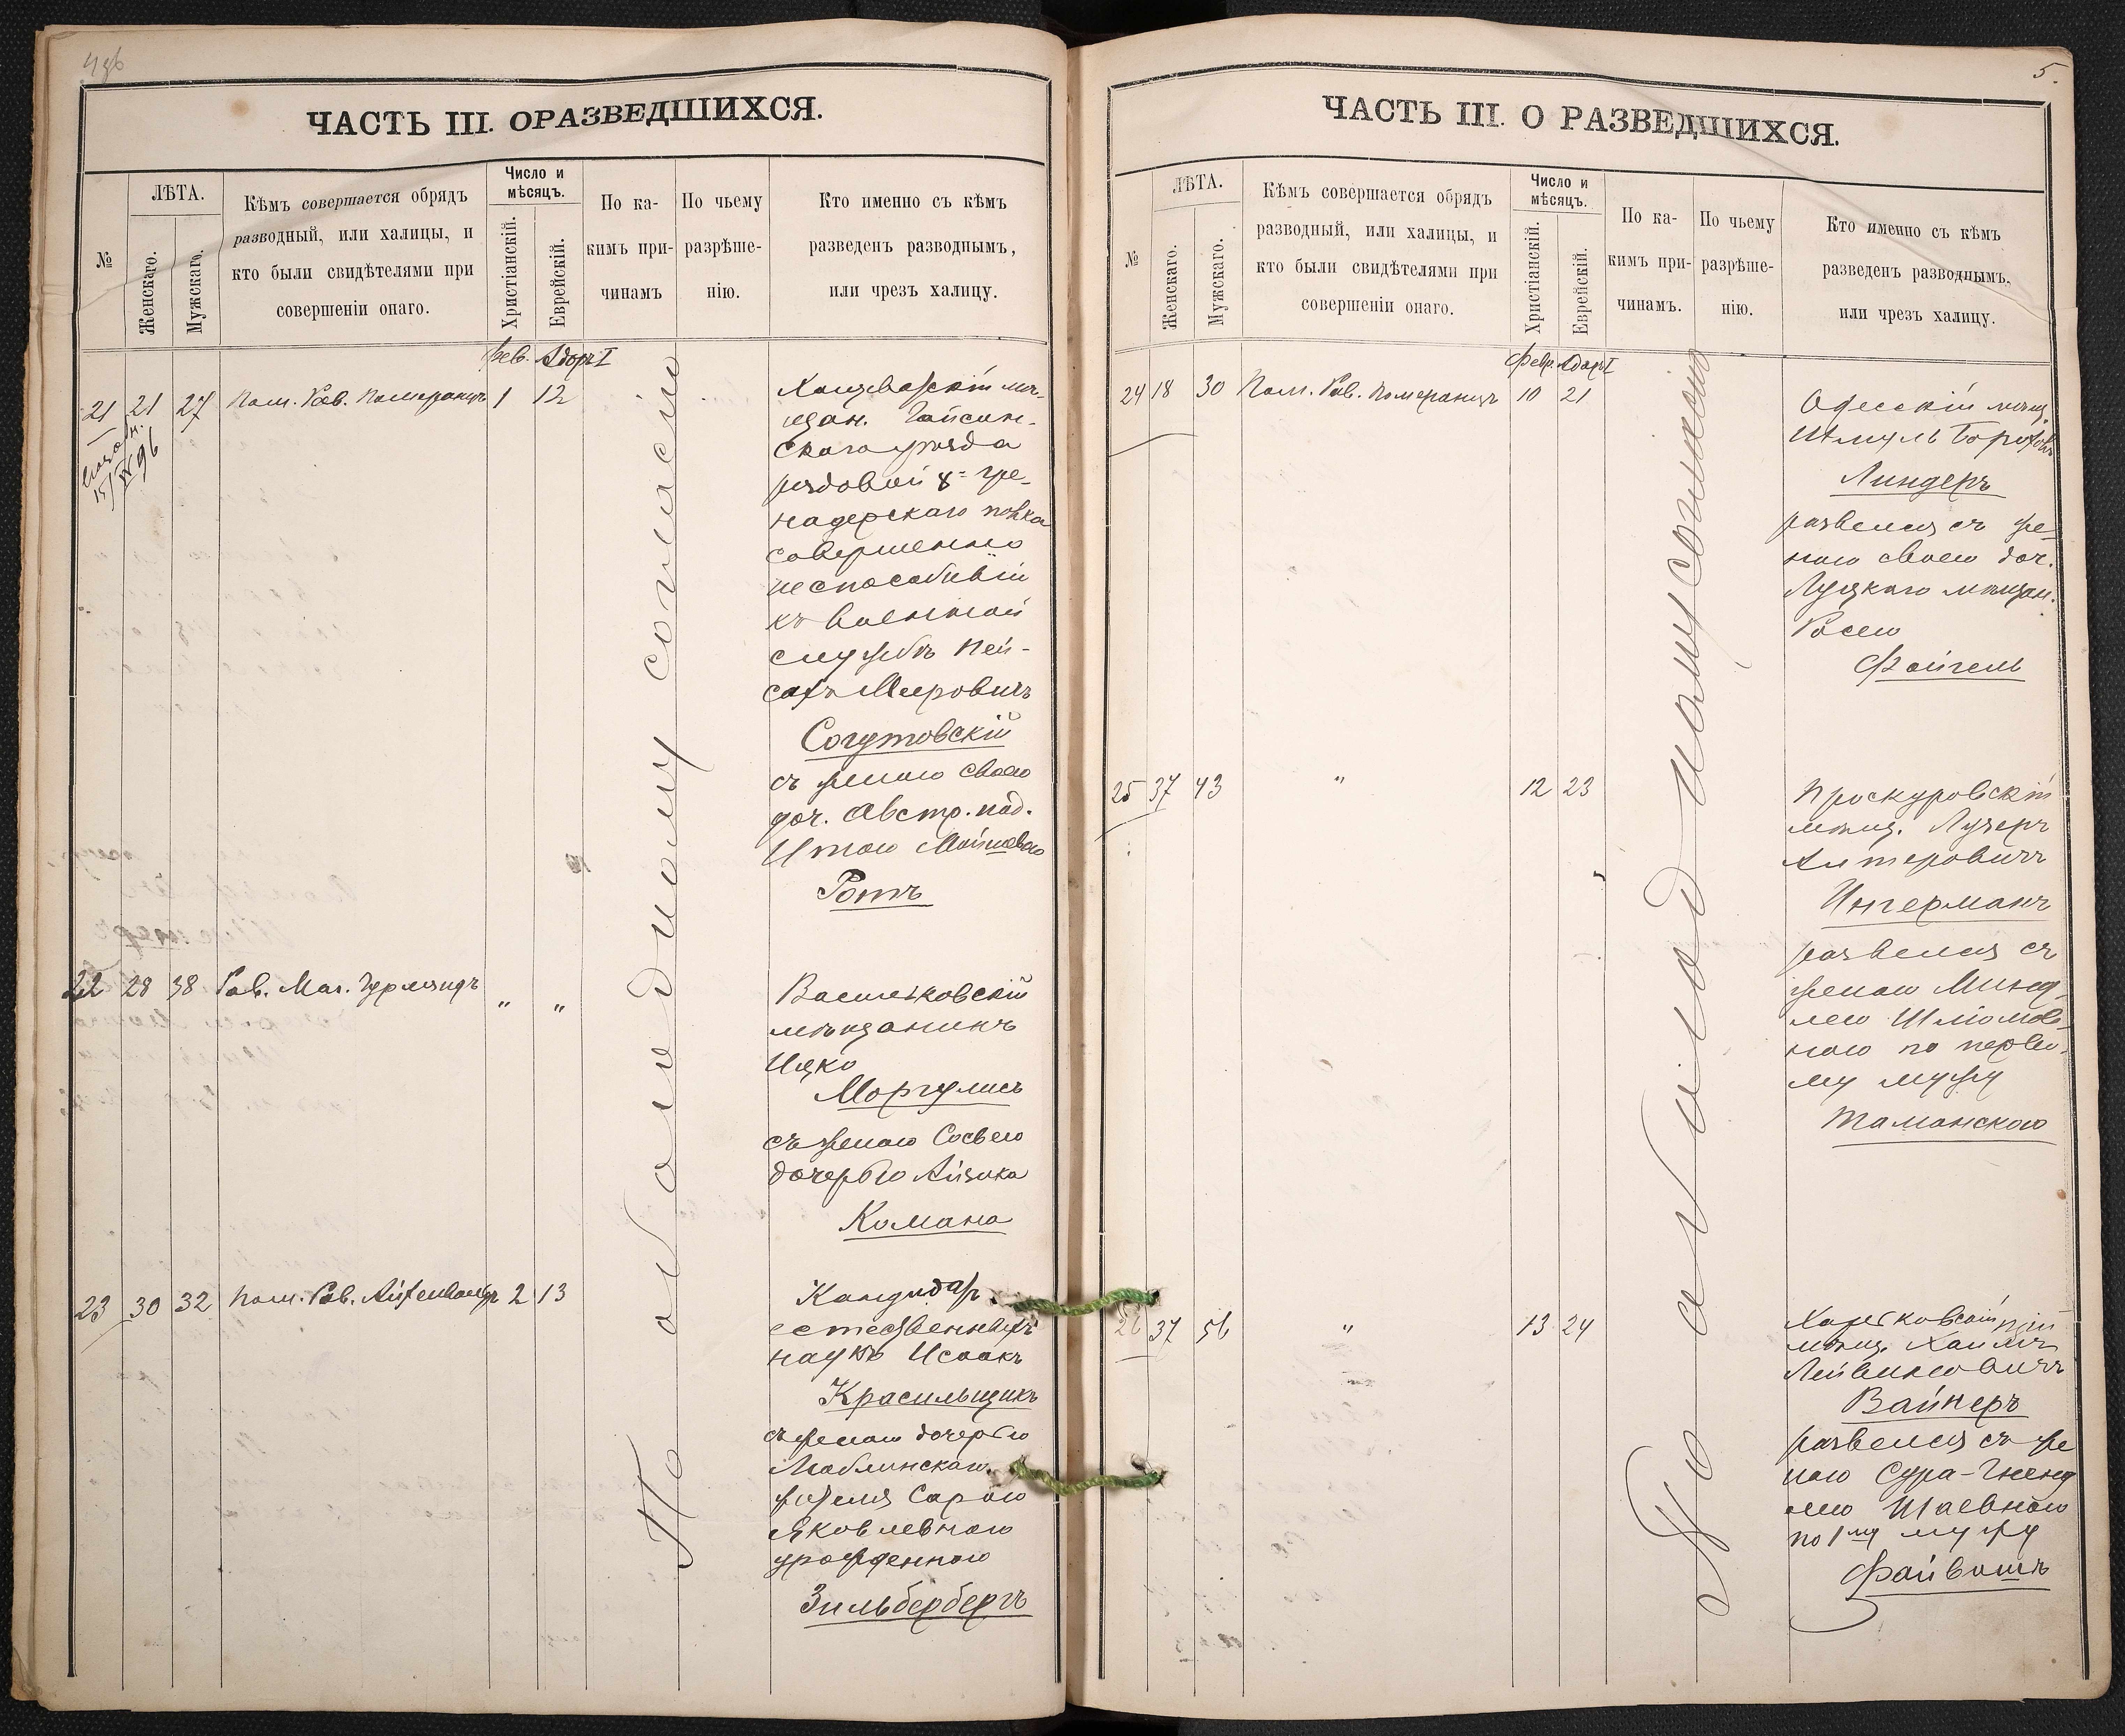 ЧАСТЬ III. О РАЗВЕДШИХСЯ.
№
ЛѢТА.
Женскаго.
Мужскаго.
Кѣмъ совершается обрядъ
разводный, или халицы, и
кто были свидѣтелями при
совершеніи онаго.
Число и
мѣсяцъ.
Христіанскій.
Еврейскій.
По ка-
кимъ при-
чинамъ
По чьему
разрѣше-
нію.
Кто именно съ кѣмъ
разведенъ разводнымъ,
или чрезъ халицу.
Фев. Адоръ I
21 21 27 Пом. Рав. Померанцъ 1 12
По обоюдному согласію
мѣ-
щан. Гайсин-
скаго уѣзда
рядовой 8= гре-
надерскаго полка
совершенно
неспособный
къ военной
службѣ Пей-
сахъ Меировичъ
Согутовскій
съ женою своею
доч. Австр. под.
Итою Мойшевою
Ротъ
22 28 38 Рав. Маг. Гурляндъ " "
Васильковскій
мѣщанинъ
Ицко
Моргулисъ
съ женою Сосею
дочерью Айзика
Комана
23 30 32 Пом. Рав. Айзенбергъ 2 13
Кандидатъ
естественныхъ
наукъ Исаакъ
Красильщикъ
съ женою дочерью
Люблинскаго
жителя Сарою
Яковлевною
урожденною
Зильбербергъ
5.
ЧАСТЬ III. О РАЗВЕДШИХСЯ.
№
ЛѢТА.
Женскаго.
Мужскаго.
Кѣмъ совершается обрядъ
разводный, или халицы, и
кто были свидѣтелями при
совершеніи онаго.
Число и
мѣсяцъ.
Христіанскій.
Еврейскій.
По ка-
кимъ при-
чинамъ.
По чьему
разрѣше-
нію.
Кто именно съ кѣмъ
разведенъ разводнымъ,
или чрезъ халицу.
Февр. Адоръ I
24 18 30 Пом. Рав. Померанцъ 10 21
По обоюдному согласію
Одесскій мѣщ.
Шмуль Боруховъ
Линдеръ
развелся съ же-
ною своею доч.
Луцкаго мѣщан.
Росею
Файгель
25 37 43 " 12 23
Проскуровскій
мѣщ. Лузеръ
Алтеровичъ
Ингерманъ
развелся съ
женою Минд-
лею Шлiомов-
ною по перво-
му мужу
Таманскою
26 37 56 " 13 24
мѣщ. Хаимъ
Лейвиковичъ
Вайнеръ
развелся съ же
ною Сура-Гненд
лею Шаевною
по 1му мужу
Файвишъ